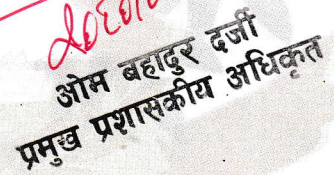 ओम बहादुर दर्जी
प्रमुख प्रशासकीय अधिकृत